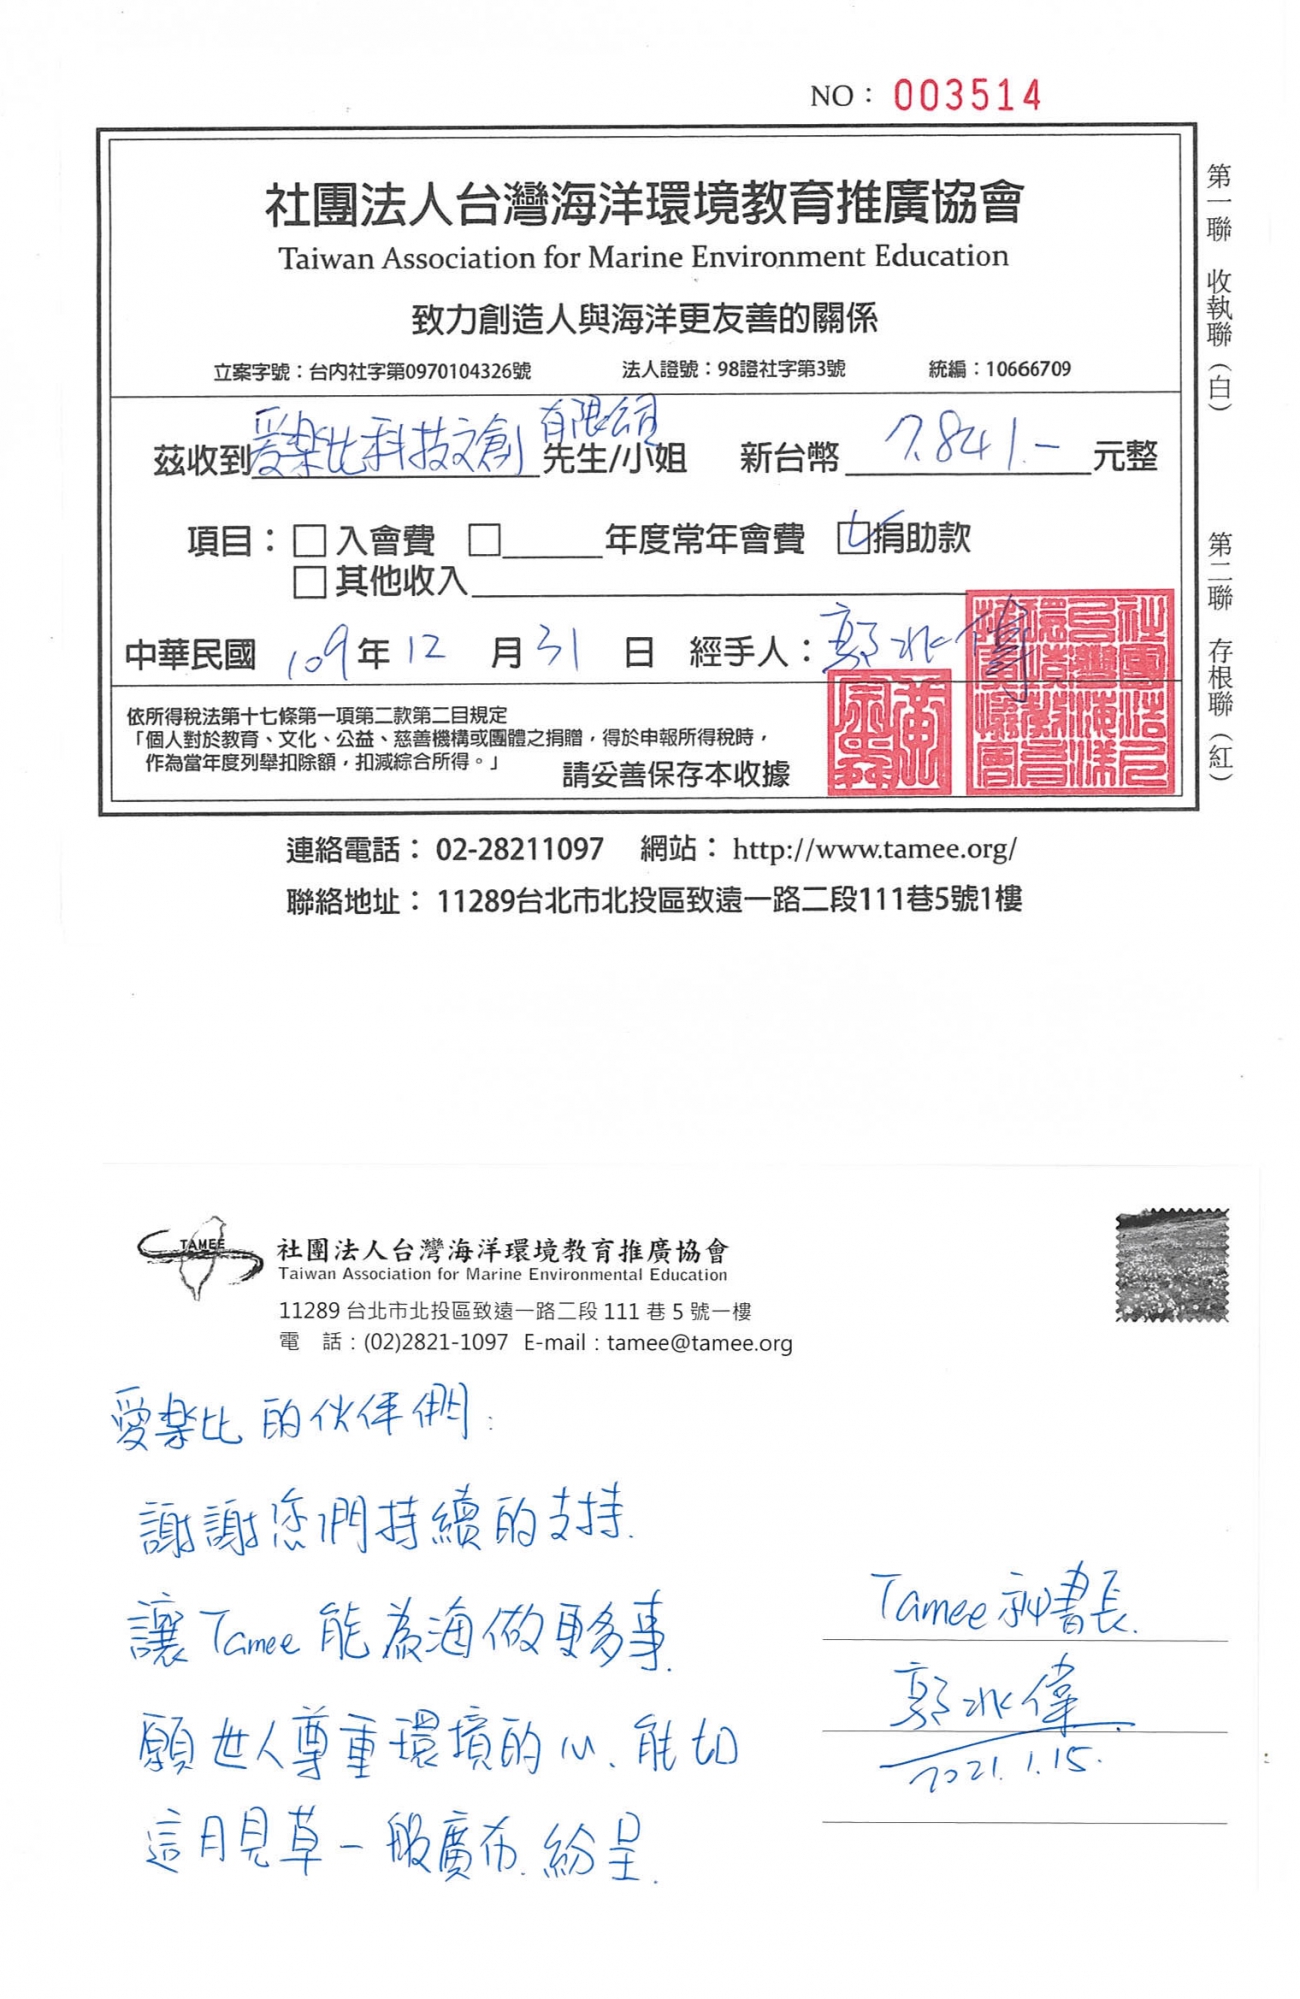 NO： 003514
社團法人台灣海洋環境教育推廣協會
Taiwan Association for Marine Environment Education
致力創造人與海洋更友善的關係
立案字號：台內社字第0970104326號 法人證號：98證社字第3號 統編：10666709
茲收到愛樂比科技文創有限公司先生/小姐 新台幣 7,841.- 元整
項目：□入會費 □______年度常年會費 ☑捐助款
□其他收入
中華民國 109年 12 月 31 日 經手人：郭兆偉
依所得稅法第十七條第一項第二款第二目規定
「個人對於教育、文化、公益、慈善機構或團體之捐贈，得於申報所得稅時，
作為當年度列舉扣除額，扣減綜合所得。」
請妥善保存本收據
第一聯 收執聯（白）
第二聯 存根聯（紅）
連絡電話： 02-28211097 網站： http://www.tamee.org/
聯絡地址： 11289台北市北投區致遠一路二段111巷5號1樓
TAMEE
社團法人台灣海洋環境教育推廣協會
Taiwan Association for Marine Environmental Education
11289 台北市北投區致遠一路二段 111 巷 5 號一樓
電 話：(02)2821-1097 E-mail：tamee@tamee.org
愛樂比的伙伴們：
謝謝您們持續的支持.
讓Tamee能為海做更多事.
願世人尊重環境的心、能如
這月見草一般廣布.紛呈.
Tamee 秘書長.
郭兆偉
2021.1.15.